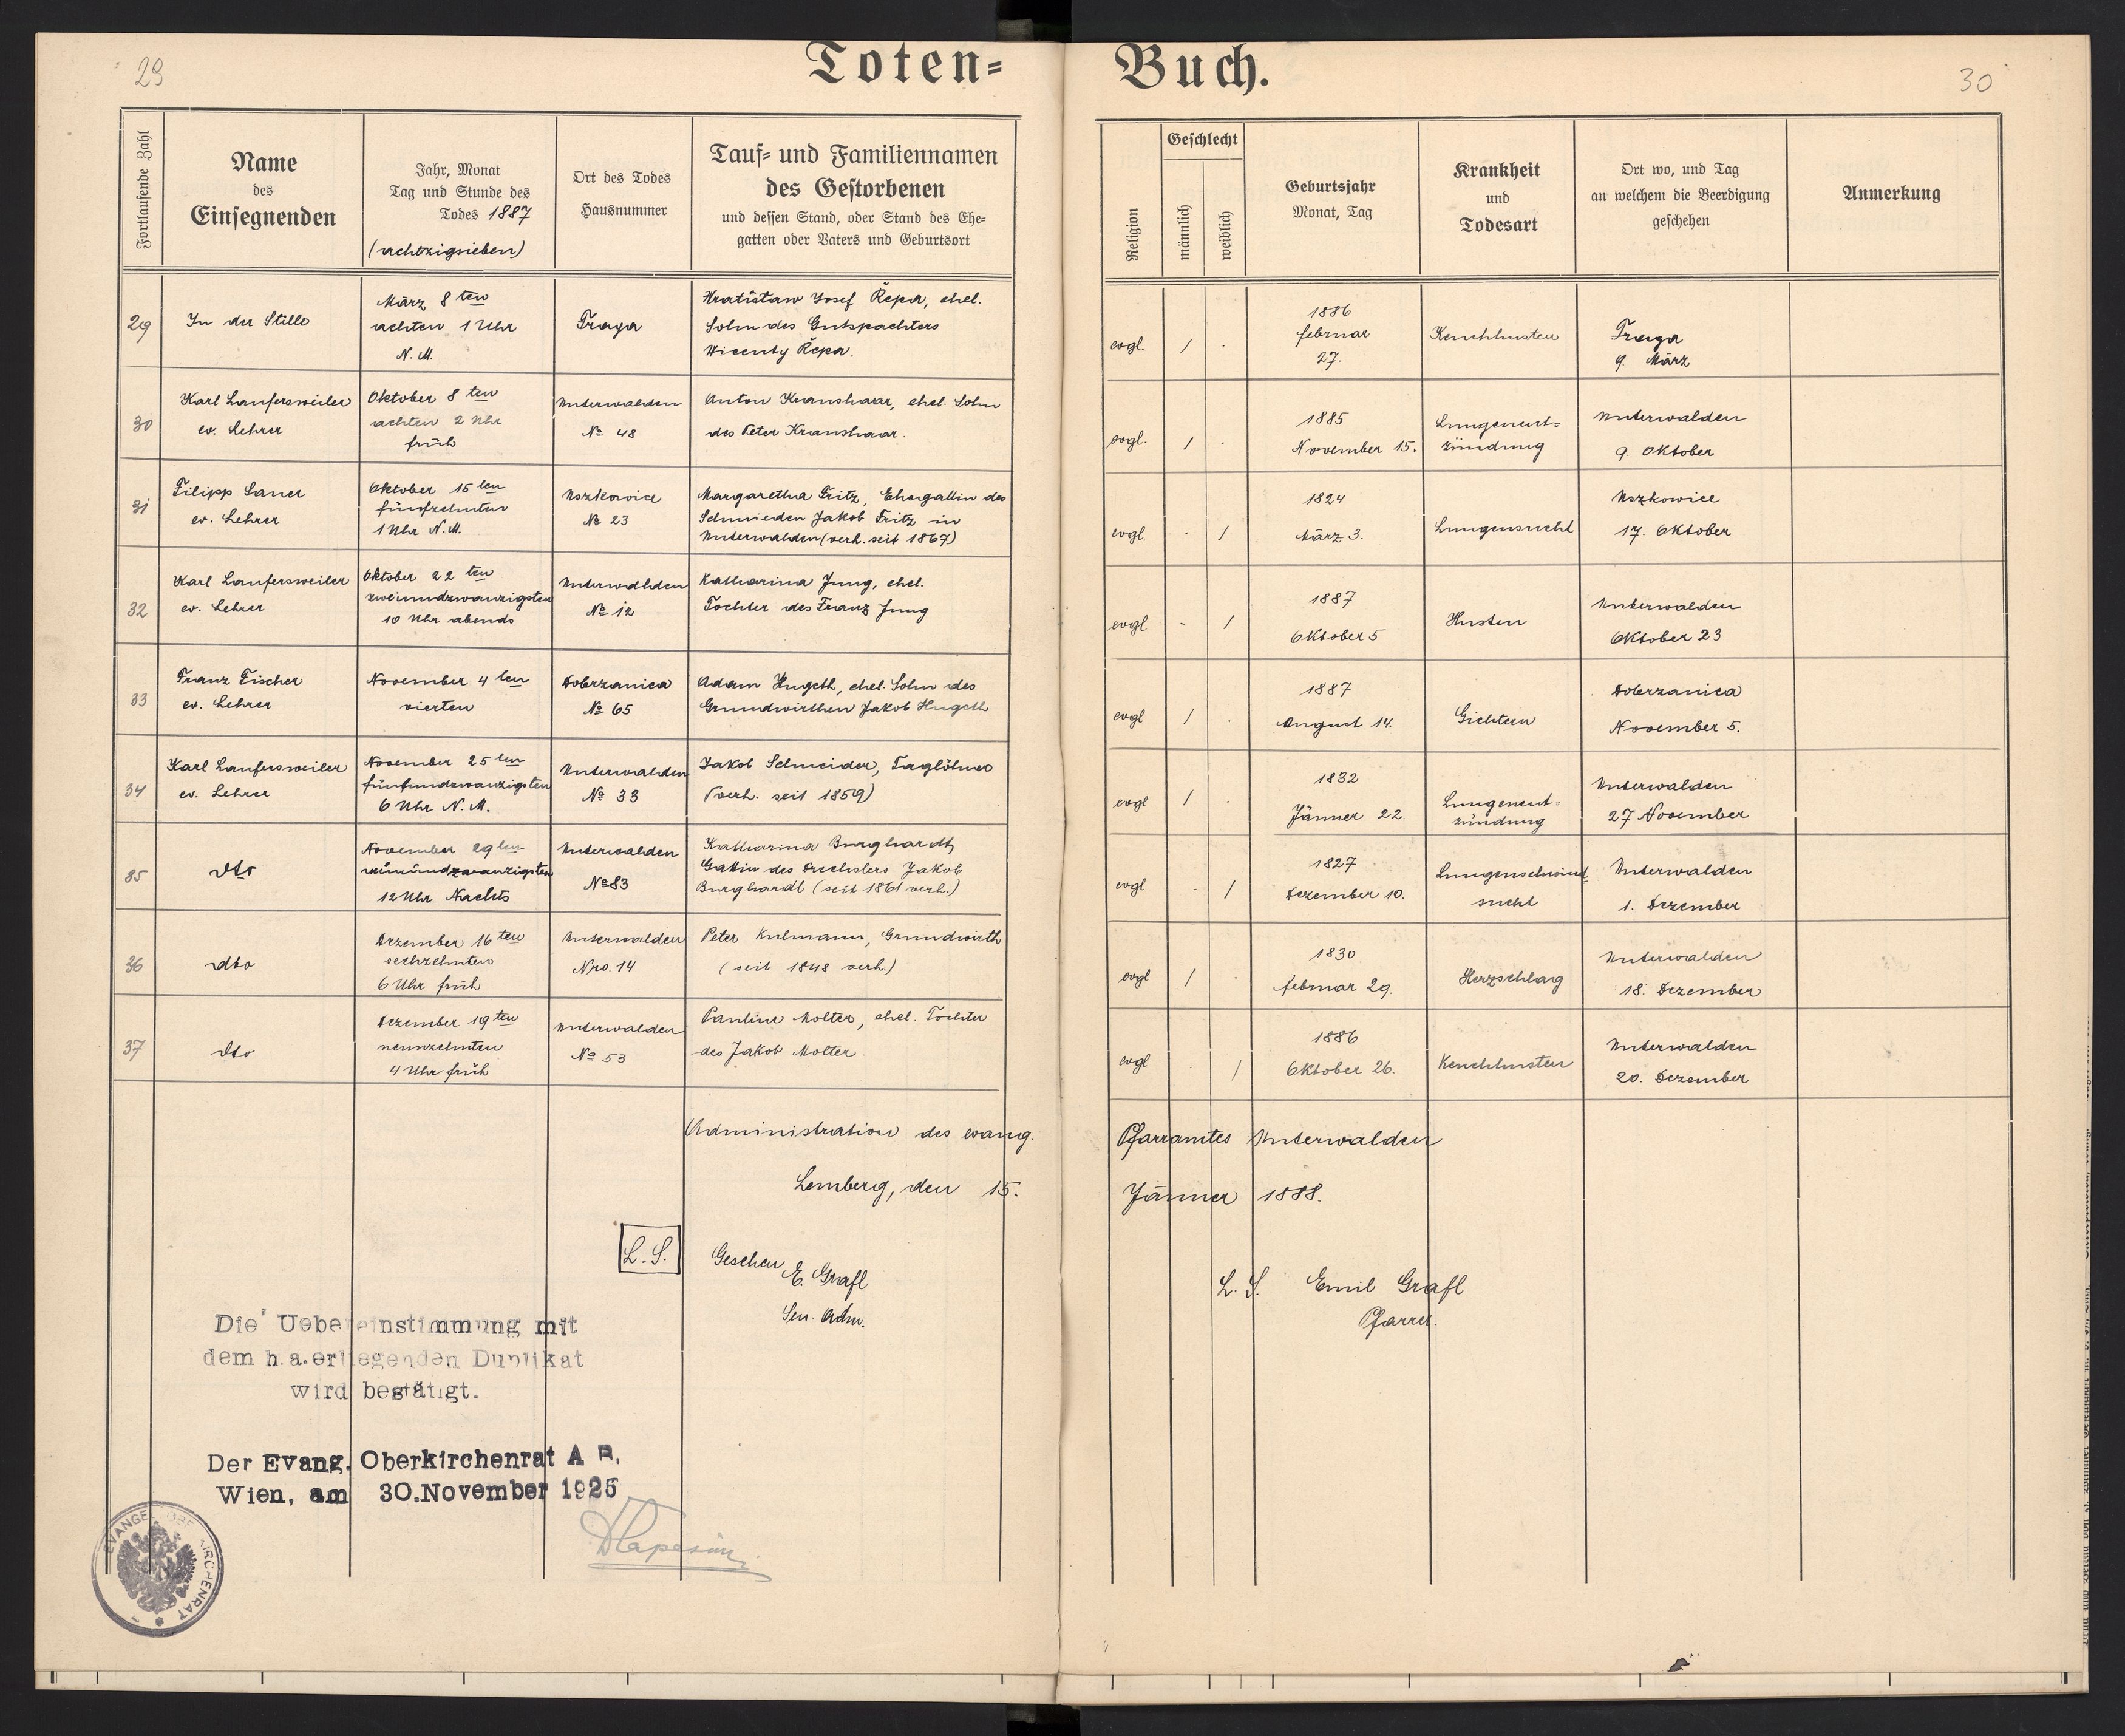 29
Toten=
Fortlaufende Zahl
Name
des
Einsegnenden
Jahr, Monat
Tag und Stunde des
Todes 1887
(achtzigsieben)
Ort des Todes
Hausnummer
Tauf= und Familiennamen
des Gestorbenen
und dessen Stand, oder Stand des Ehe=
gatten oder Vaters und Geburtsort
29
In der Stille
März 8 ten
achten 1 Uhr
N. M.
Josef Řepa, ehel.
Sohn des Gutspachters
Wicenty Řepa.
30
Karl Laufersweiler
ev. Lehrer
Oktober 8 ten
achten 2 Uhr
früh
Unterwalden
№ 48
Anton Kranshaar, ehel. Sohn
des Peter Kranshaar.
31
Filipp Sauer
ev. Lehrer
Oktober 15 ten
fünfzehnten
1 Uhr N. M.
Uszkowice
№ 23
Margaretha Fritz, Ehegattin des
Schmieden Jakob Fritz in
Unterwalden (verh. seit 1867)
32
Karl Laufersweiler
ev. Lehrer
Oktober 22 ten
zweiundzwanzigsten
10 Uhr abends
Unterwalden
№ 12
Katharina Jung, ehel.
Tochter des Franz Jung
33
Franz Fischer
ev. Lehrer
November 4 ten
vierten
Dobrzanica
№ 65
Adam Hugeth, ehel. Sohn des
Grundwirthen Jakob Hugeth
34
Karl Laufersweiler
ev. Lehrer
November 25 ten
fünfundzwanzigsten
6 Uhr N. M.
Unterwalden
№ 33
Jakob Schneider, Taglöhner
(verh. seit 1859)
35
dto
November 29 ten
neunundzwanzigsten
12 Uhr Nachts
Unterwalden
№ 83
Katharina Burghardt,
Gattin des Drechslers Jakob
Burghardt (seit 1861 verh.)
36
dto
Dezember 16 ten
sechzehnten
6 Uhr früh
Unterwalden
Nro. 14
Peter Kulmann, Grundwirth
(seit 1848 verh.)
37
dto
Dezember 19 ten
neunzehnten
4 Uhr früh
Unterwalden
№ 53
Pauline Molter, ehel. Tochter
des Jakob Molter.
Administration des evang.
Lemberg, den 15.
L. S.
Gesehen
E. Grafl
Sen. Adm.
Die Uebereinstimmung mit
dem h.a.erliegenden Duplikat
wird bestätigt.
Der Evang. Oberkirchenrat A B.
Wien, am 30.November 1925
EVANGEL. OBERKIRCHENRAT
Buch.
30
Religion
Geschlecht
männlich
weiblich
Geburtsjahr
Monat, Tag
Krankheit
und
Todesart
Ort wo, und Tag
an welchem die Beerdigung
geschehen
Anmerkung
evgl.
1
1886
februar
27.
Keuchhusten
9. März
evgl.
1
1885
November 15.
Lungenent=
zündung
Unterwalden
9. Oktober
evgl.
1
1824
März 3.
Lungensucht
Uszkowice
17. Oktober
evgl
1
1887
Oktober 5
Husten
Unterwalden
Oktober 23
evgl
1
1887
August 14.
Gichtern
Dobrzanica
November 5.
evgl
1
1832
Jänner 22.
Lungenent=
zündung
Unterwalden
27 November
evgl
1
1827
Dezember 10.
Lungenschwind
sucht
Unterwalden
1. Dezember
evgl
1
1830
februar 29.
Herzschlag
Unterwalden
18. Dezember
evgl
1
1886
Oktober 26.
Keuchhusten
Unterwalden
20. Dezember
Pfarramtes Unterwalden
Jänner 1888.
L. S. Emil Grafl
Pfarrer.